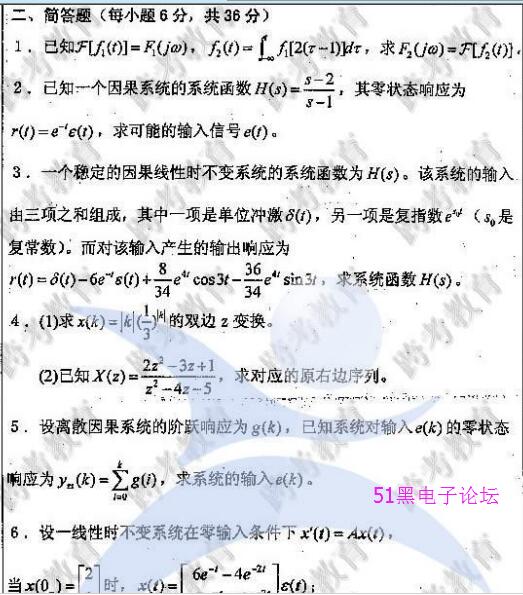 二、简答题（每小题6分，共36分）
1．已知ℱ[f₁(t)]=F₁(jω)，f₂(t)=∫_{-∞}^{t} f₁[2(τ-1)]dτ，求F₂(jω)=ℱ[f₂(t)].
2．已知一个因果系统的系统函数H(s)=(s-2)/(s-1)，其零状态响应为
r(t)=e^{-t}ε(t)，求可能的输入信号e(t)。
3．一个稳定的因果线性时不变系统的系统函数为H(s)。该系统的输入
由三项之和组成，其中一项是单位冲激δ(t)，另一项是复指数e^{s₀t}（s₀是
复常数）。而对该输入产生的输出响应为
r(t)=δ(t)-6e^{-t}ε(t)+(8/34)e^{4t}cos3t-(36/34)e^{4t}sin3t，求系统函数H(s)。
4．(1)求x(k)=|k|(1/3)^{|k|}的双边z变换。
(2)已知X(z)=(2z²-3z+1)/(z²-4z-5)，求对应的原右边序列。
5．设离散因果系统的阶跃响应为g(k)，已知系统对输入e(k)的零状态
响应为y_{zs}(k)=∑_{i=0}^{k} g(i)，求系统的输入e(k)。
51黑电子论坛
6．设一线性时不变系统在零输入条件下x'(t)=Ax(t)，
当x(0_)=[2 时，x(t)=[6e^{-t}-4e^{-2t} ]ε(t)；
跨考教育